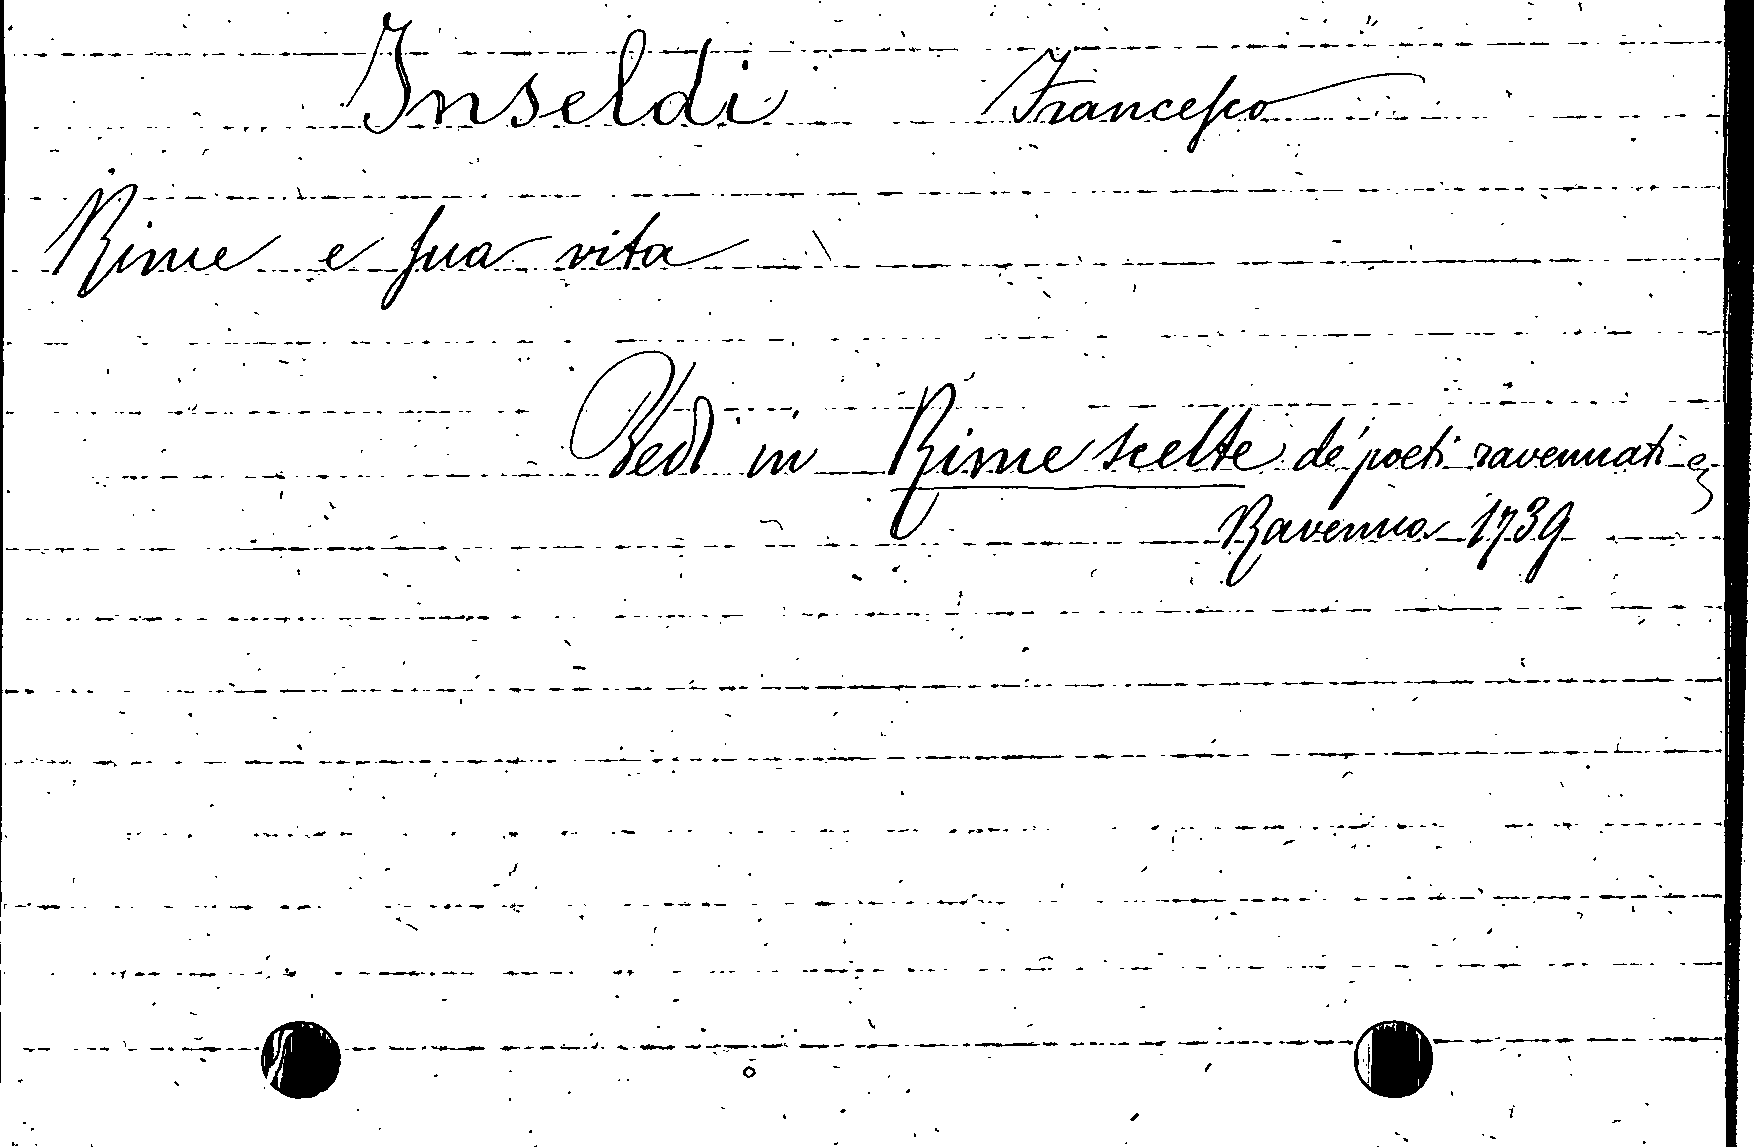 Inseldi Francesco
Rime e sua vita
Vedi in Rime scelte de' poeti ravennati ec
Ravenna 1739